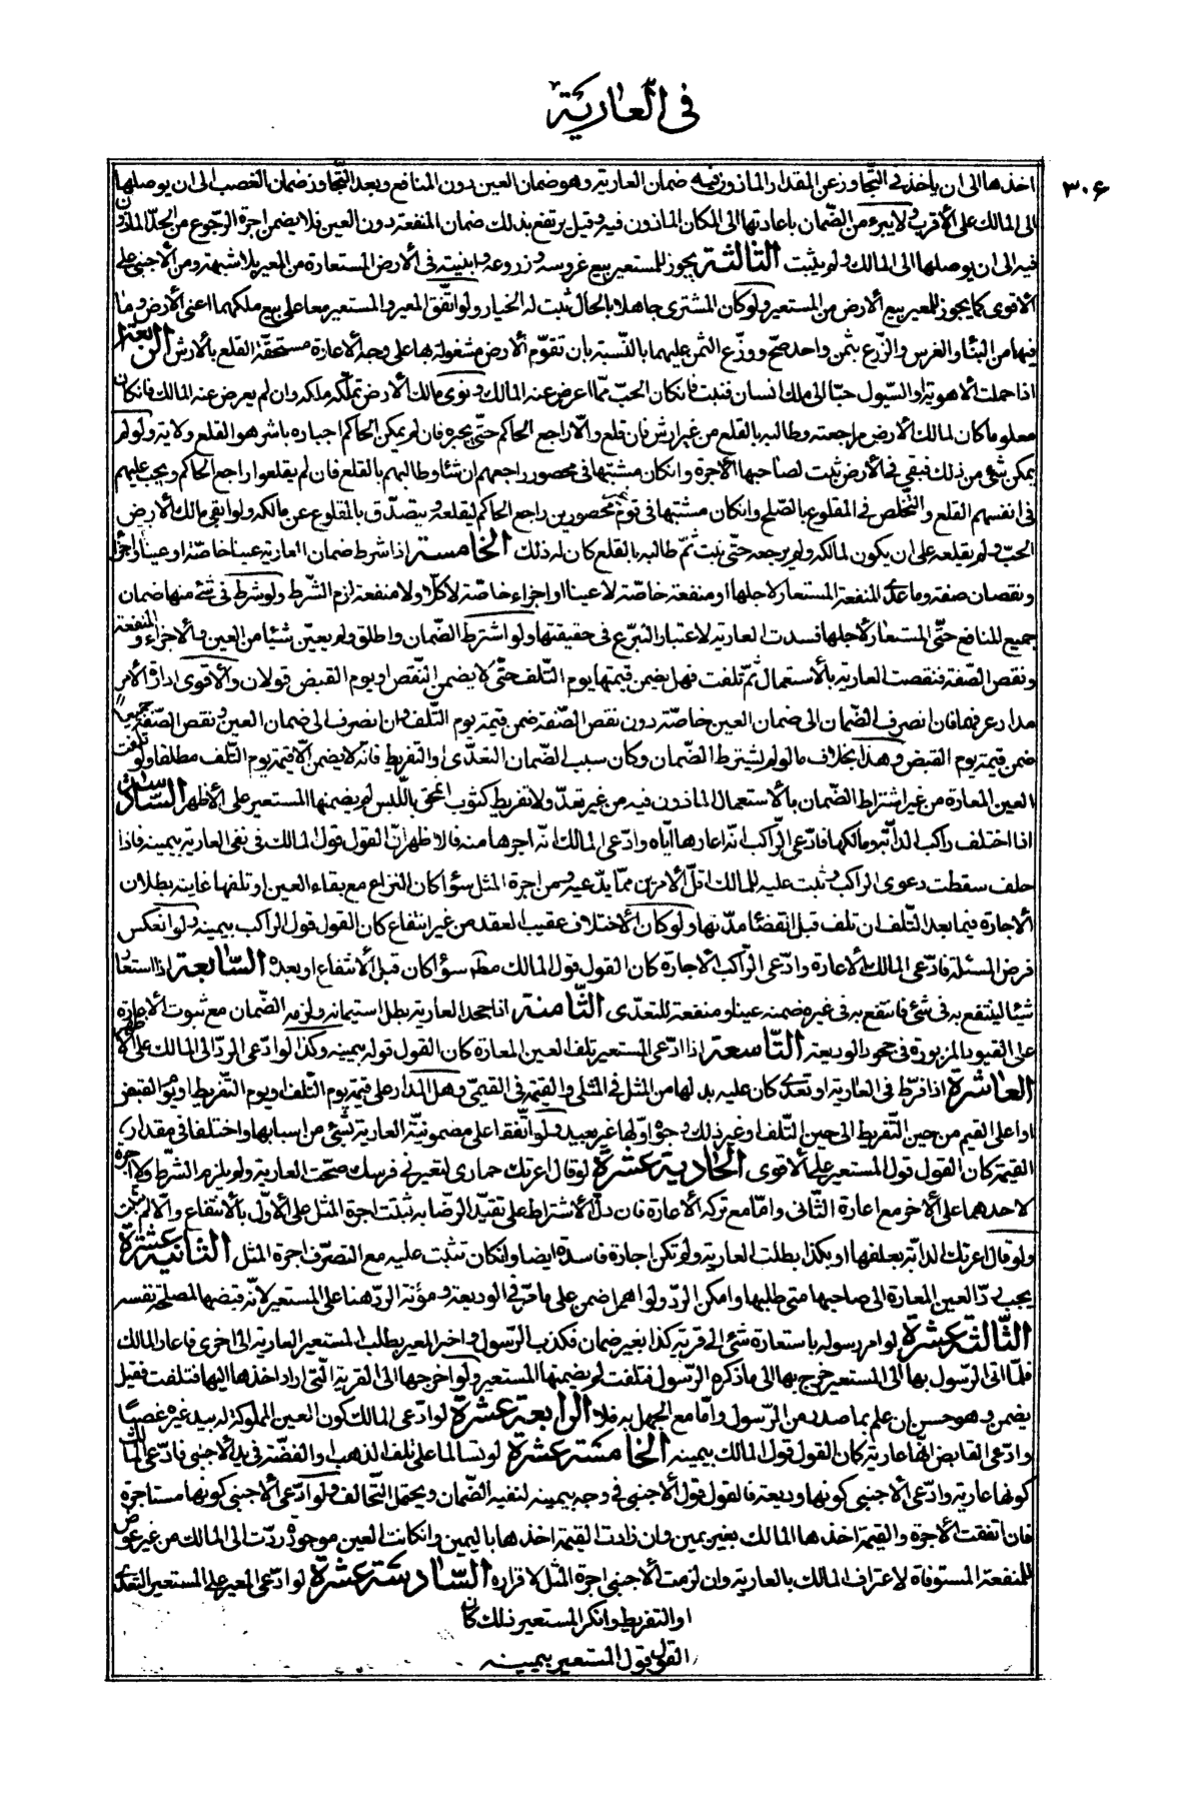 فى العارية
٣٠۶
اخذها الى ان ياخذ فى التجاوز عن المقدار المأذون فيه ضمان العارية وهو ضمان العين دون المنافع وبعد التجاوز ضمان الغصب الى ان يوصلها
الى المالك على الأقرب ولا يبرء من الضمان باعادتها الى المكان المأذون فيه وقيل يرتفع بذلك ضمان المنفعة دون العين فلا يضمن اجرة الرجوع من الحد المأذون
فيه الى ان يوصلها الى المالك ولم يثبت الثالثة يجوز للمستعير بيع غروسه وزروعه وابنيته فى الأرض المستعارة من المعير بلا شبهة ومن الأجنبى على
الأقوى كما يجوز للمعير بيع الأرض من المستعير ولو كان المشترى جاهلا بالحال ثبت له الخيار ولو اتفق المعير والمستعير معا على بيع ملكهما اعنى الأرض وما
فيها من البناء والغرس والزرع بثمن واحد صح ووزع الثمن عليهما بالنسبة بان تقوم الأرض مشغولة بها على وجه الأعارة مستحقة القلع بالأرش الرابعة
اذا حملت الأهوية او السيول حبا الى ملك انسان فنبت فان كان الحب مما اعرض عنه المالك ونوى مالك الأرض تملكه ملكه وان لم يعرض عنه المالك فانكان
معلوما كان لمالك الأرض مراجعته وطالبه بالقلع من غير ارش فان قلع والا راجع الحاكم حتى يجبره فان لم يمكن الحاكم اجباره باشر هو القلع ولاية ولو لم
يمكن شئ من ذلك فبقى فى الأرض ثبت لصاحبها الأجرة وانكان مشتبها فى محصور راجعهم ان شاء وطالبهم بالقلع فان لم يقلعوا راجع الحاكم ويجب عليهم
فى انفسهم القلع والتخلص فى المقلوع بالصلح وانكان مشتبها فى قوم غير محصورين راجع الحاكم ليقلعه ويتصدق بالمقلوع عن مالكه ولو ابقى مالك الأرض
الحب ولم يقلعه على ان يكون لمالكه ولم يرجعه حتى نبت ثم طالبه بالقلع كان له ذلك الخامسة اذا شرط ضمان العارية عينا خاصة او عينا واجزاء
ونقصان صفة وما عدى المنفعة المستعار لاجلها او منفعة خاصة لا عينا او اجزاء خاصة لا كلا ولا منفعة لزم الشرط ولو شرط فى شئ منها ضمان
جميع المنافع حتى المستعار لأجلها فسدت العارية لاعتبار التبرع فى حقيقتها ولو اشترط الضمان واطلق ولم يعين شيئا من العين والأجزاء والمنفعة
ونقص الصفة فنقصت العارية بالأستعمال ثم تلفت فهل يضمن قيمتها يوم التلف حتى لا يضمن النقص او يوم القبض قولان والأقوى ادارة الأمر
مدار عرفها فان انصرف الضمان الى ضمان العين خاصة دون نقص الصفة ضمن قيمة يوم التلف وان انصرف الى ضمان العين ونقص الصفة جميعا
ضمن قيمة يوم القبض وهذا بخلاف ما لو لم يشترط الضمان وكان سبب الضمان التعدى او التفريط فانه لا يضمن الا قيمة يوم التلف مطلقا ولو تلفت
العين المعارة من غير اشتراط الضمان بالأستعمال المأذون فيه من غير تعد ولا تفريط كثوب انمحق باللبس لم يضمنها المستعير على الأظهر السادسة
اذا اختلف راكب الدابة ومالكها فادعى الراكب انه اعارها اياه وادعى المالك انه اجرها منه فالاظهر ان القول قول المالك فى نفى العارية بيمينه فاذا
حلف سقطت دعوى الراكب وثبت عليه للمالك اقل الأمرين مما يدعيه ومن اجرة المثل سواء كان النزاع مع بقاء العين او تلفها غايته بطلان
الأجارة فيما بعد التلف ان تلف قبل انقضاء مدتها ولو كان الأختلاف عقيب العقد من غير انتفاع كان القول قول الراكب بيمينه ولو انعكس
فرض المسئلة فادعى المالك الأعارة وادعى الراكب الأجارة كان القول قول المالك سواء كان قبل الأنتفاع او بعده السابعة اذا استعار
شيئا لينتفع به فى شئ فانتفع به فى غيره ضمنه عينا ومنفعة للتعدى الثامنة اذا جحد العارية بطل استيمانه ولزمه الضمان مع ثبوت الأعارة
على القيود المزبورة فى جحود الوديعة التاسعة اذا ادعى المستعير تلف العين المعارة كان القول قوله بيمينه وكذا لو ادعى الرد الى المالك على الأظهر
العاشرة اذا فرط فى العارية او تعدى كان عليه بدلها من المثل فى المثلى والقيمة فى القيمى وهل المدار على قيمة يوم التلف او يوم التفريط او يوم القبض
او اعلى القيم من حين التفريط الى حين التلف او غير ذلك وجوه اولها غير بعيد ولو اتفقا على مضمونية العارية بشئ من اسبابها واختلفا فى مقدار
القيمة كان القول قول المستعير على الأقوى الحادية عشرة لو قال اعرتك حمارى لتعيرنى فرسك صحت العارية ولم يلزم الشرط ولا اجرة
لاحدهما على الأخر مع اعارة الثانى واما مع تركه الأعارة فان دل الأشتراط على تقيد الرضا به ثبتت اجرة المثل على الأول بالأنتفاع والا لم تثبت
ولو قال اعرتك الدابة بعلفها او بكذا بطلت العارية ولم تكن اجارة فاسدة ايضا وانكان تثبت عليه مع التصرف اجرة المثل الثانية عشرة
يجب رد العين المعارة الى صاحبها متى طلبها وامكن الرد ولو اهمل ضمن على ما مر فى الوديعة ومؤنة الرد هنا على المستعير لانه قبضها لمصلحة نفسه
الثالثة عشرة لو امر رسوله باستعارة شئ الى قرية كذا بغير ضمان فكذب الرسول واخبر المعير بطلب المستعير العارية الى اخرى فاعار المالك
فلما اتى الرسول بها الى المستعير خرج بها الى ما ذكره الرسول فتلفت لم يضمنها المستعير ولو اخرجها الى القرية التى اراد اخذها اليها فتلفت فقيل
يضمن وهو حسن ان علم بما صدر من الرسول واما مع الجهل به فلا الرابعة عشرة لو ادعى المالك كون العين المملوكة له بيد غيره غصبا
وادعى القابض انها عارية كان القول قول المالك بيمينه الخامسة عشرة لو تسالما على تلف الذهب او الفضة فى يد الأجنبى فادعى المالك
كونها عارية وادعى الأجنبى كونها وديعة فالقول قول الأجنبى فى وجه بيمينه لنفيه الضمان ويحتمل التحالف ولو ادعى الأجنبى كونها مستاجرة
فان اتفقت الأجرة والقيمة اخذها المالك بغير يمين وان زادت القيمة اخذها باليمين وانكانت العين موجودة ردت الى المالك من غير عوض
للمنفعة المستوفاة لاعتراف المالك بالعارية وان لزمت الأجنبى اجرة المثل لاقراره السادسة عشرة لو ادعى المعير على المستعير التعدى
او التفريط وانكر المستعير ذلك كان
القول قول المستعير بيمينه